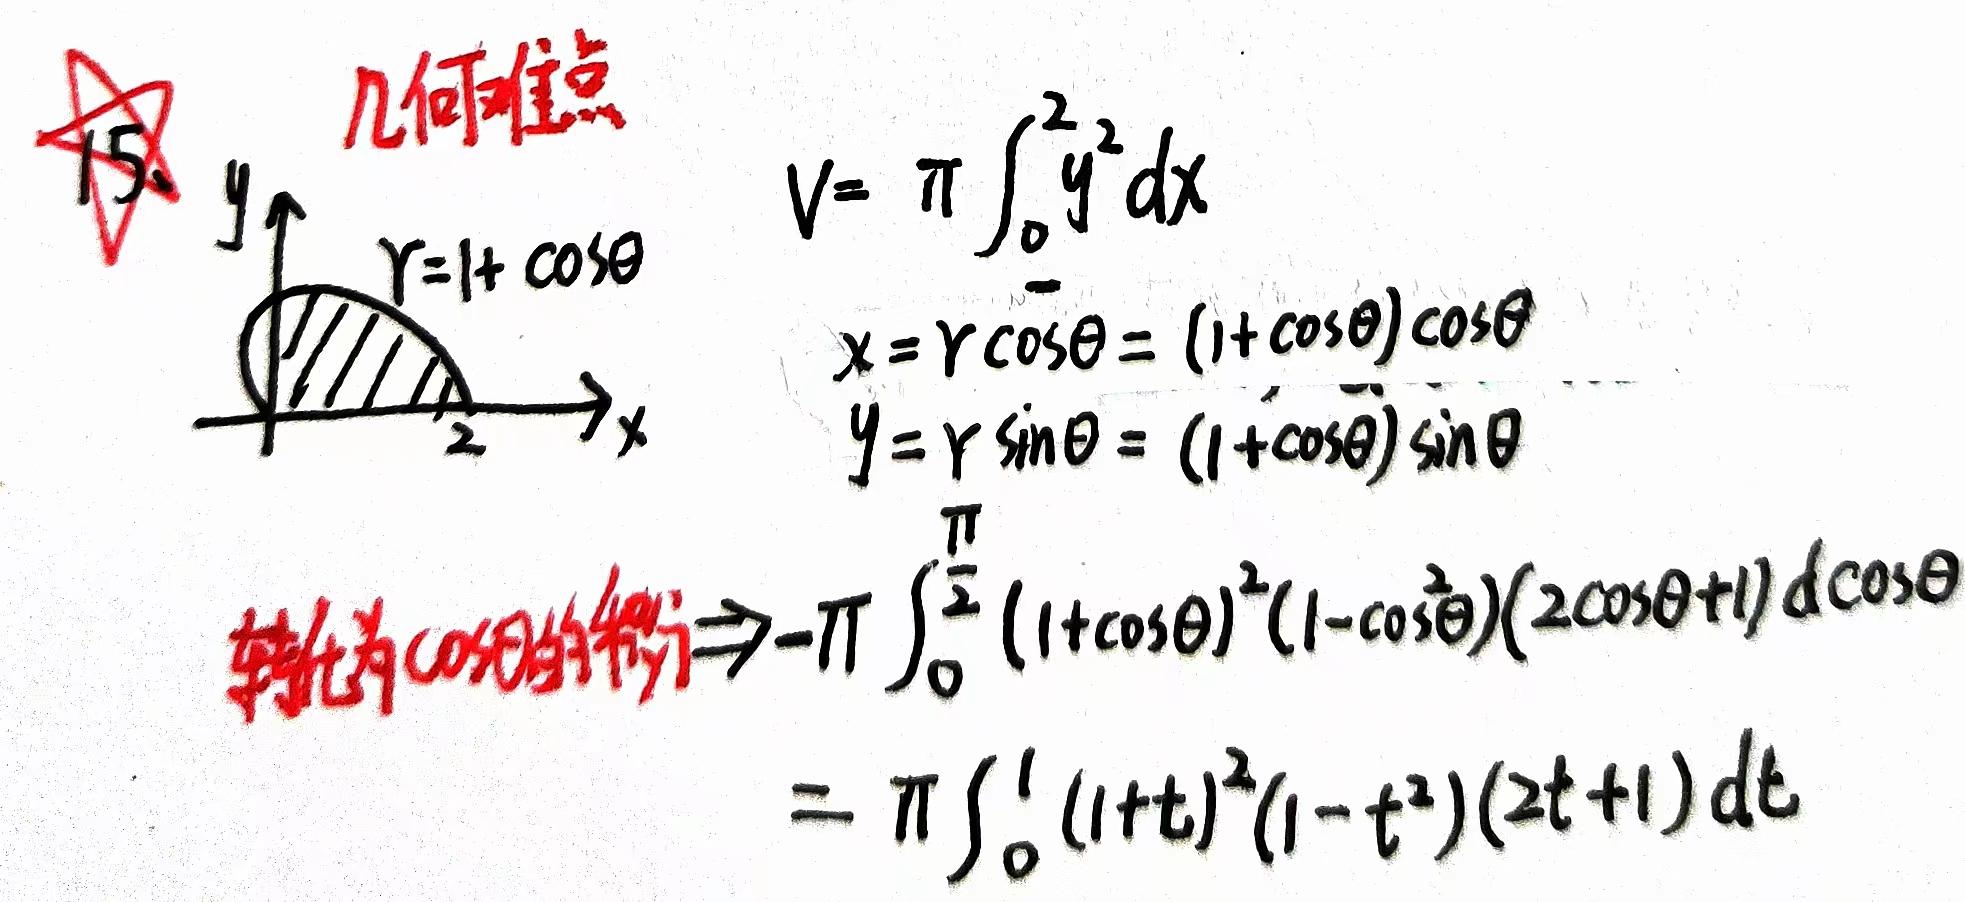 15.
几何难点
y
r=1+cosθ
2
x
V= π∫₀² y²dx
x=rcosθ=(1+cosθ)cosθ
y=rsinθ=(1+cosθ)sinθ
转化为cosθ的积分⇒-π∫₀^(π/2) (1+cosθ)²(1-cos²θ)(2cosθ+1)dcosθ
=π∫₀¹(1+t)²(1-t²)(2t+1)dt